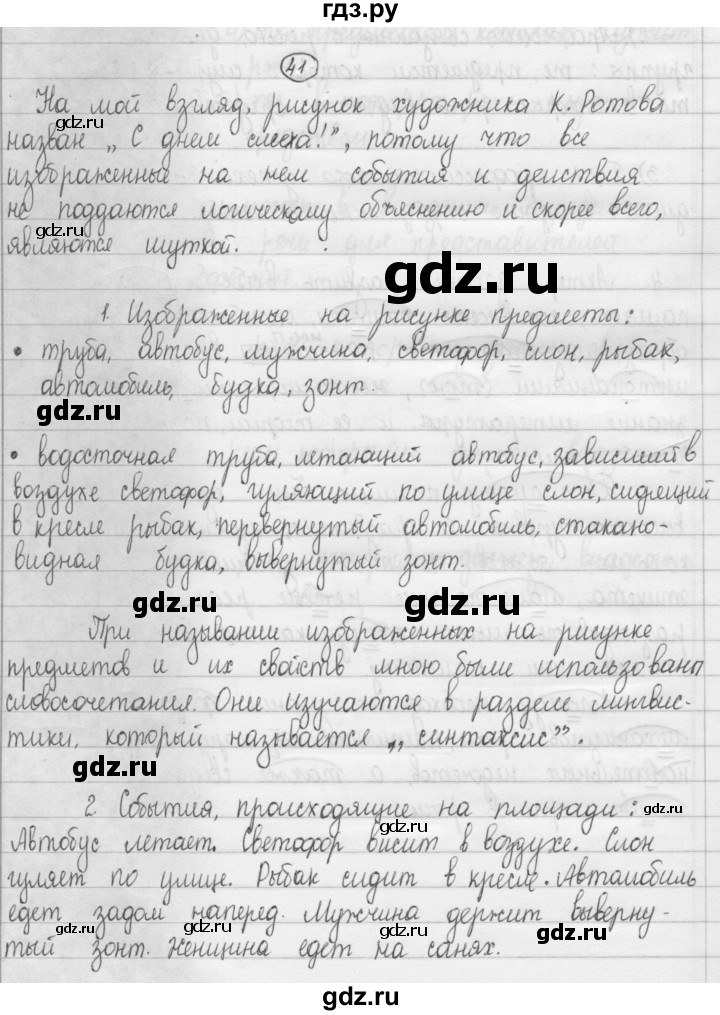 гдз.ру
41
На мой взгляд, рисунок художника К. Ротова
назван „С днем смеха!”, потому что все
изображенные на нем события и действия
не поддаются логическому объяснению и скорее всего,
являются шуткой.
1. Изображенные на рисунке предметы:
• труба, автобус, мужчина, светофор, слон, рыбак,
автомобиль, будка, зонт.
• водосточная труба, летающий автобус, зависший в
воздухе светофор, гуляющий по улице слон, сидящий
в кресле рыбак, перевернутый автомобиль, стакано-
видная будка, вывернутый зонт.
При назывании изображенных на рисунке
предметов и их свойств мною были использованы
словосочетания. Они изучаются в разделе лингвис-
тики, который называется „синтаксис”.
2. События, происходящие на площади:
Автобус летает. Светофор висит в воздухе. Слон
гуляет по улице. Рыбак сидит в кресле. Автомобиль
едет задом наперед. Мужчина держит выверну-
тый зонт. Женщина едет на санях.
gdz.ru